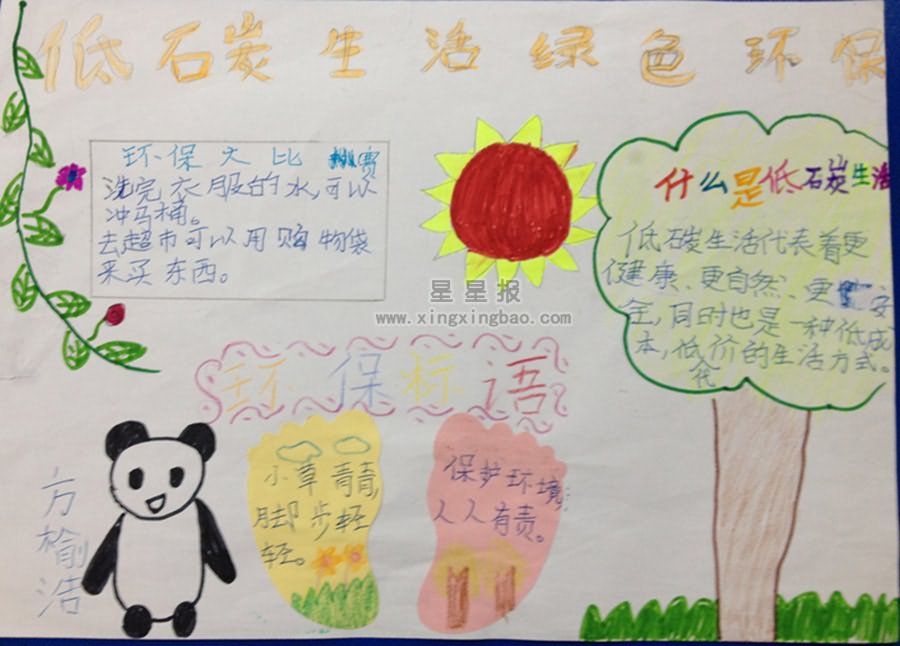 低石炭生活绿色环保
环保大比拼赛
洗完衣服的水,可以
冲马桶。
去超市可以用购物袋
来买东西。
什么是低石炭生活
低碳生活代表着更
健康、更自然、更安
全,同时也是一种低成
本,低代价的生活方式。
星星报
www.xingxingbao.com
环保标语
小草青青,
脚步轻
轻。
保护环境,
人人有责。
方榆浩